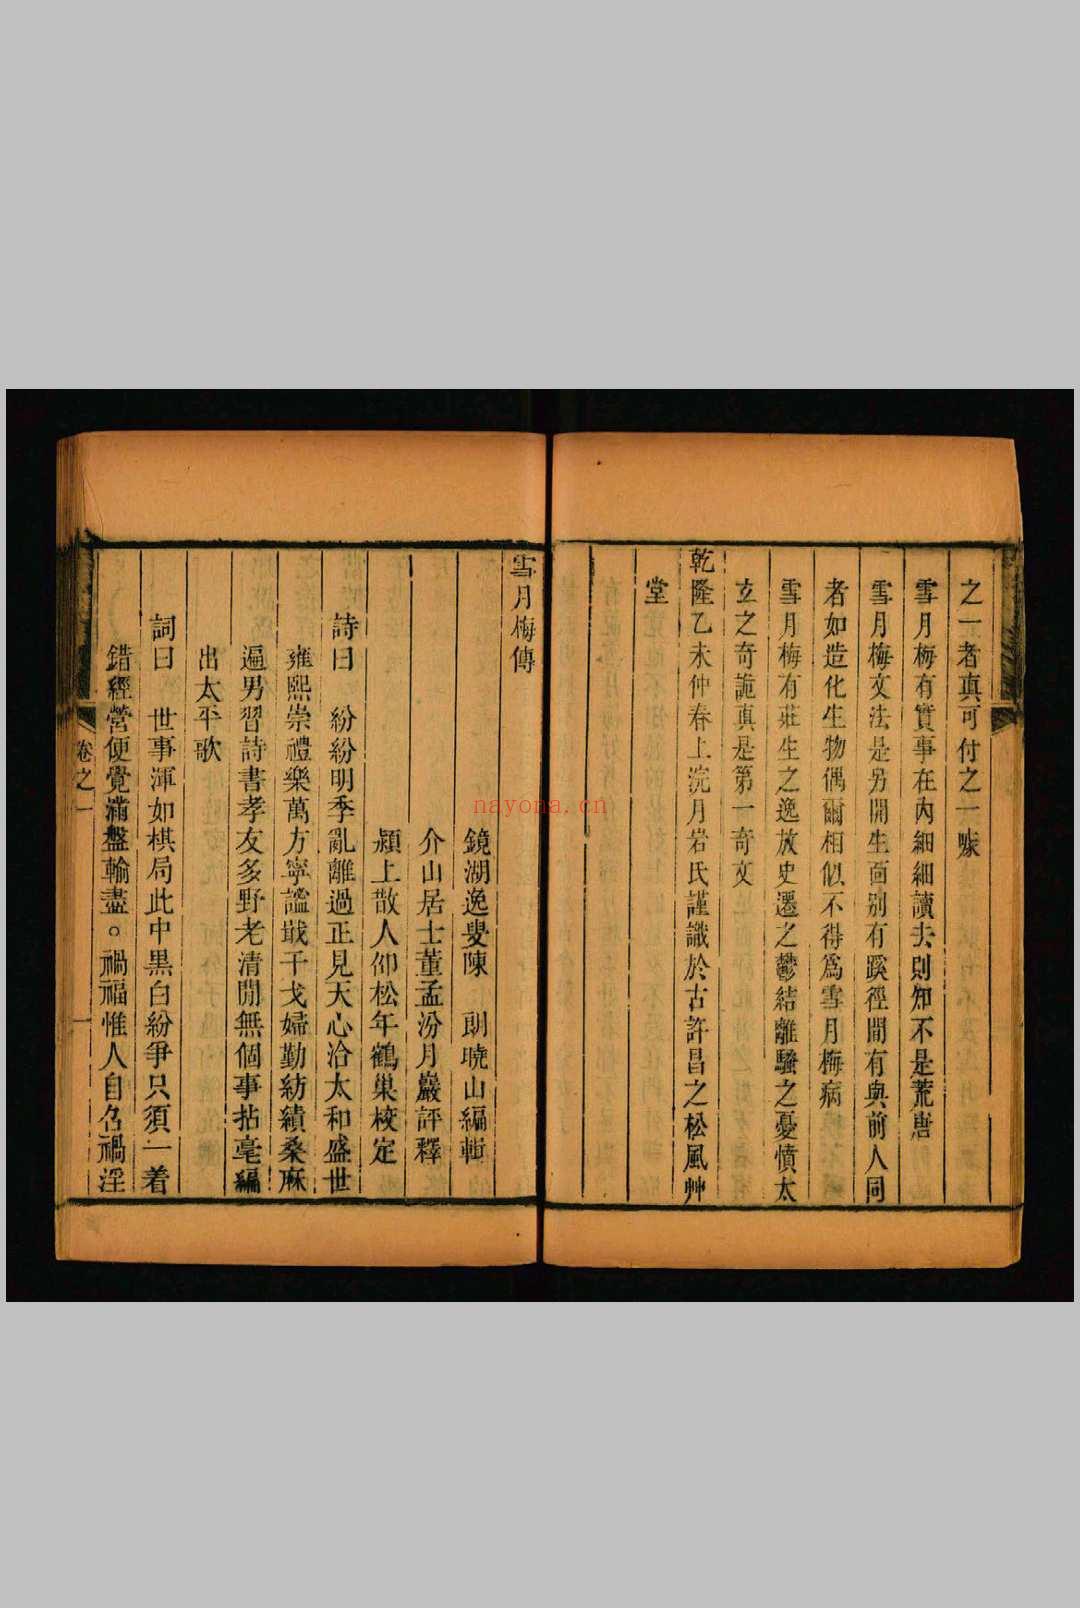 之一者真可付之一噱
雪月梅有實事在內細細讀去則知不是荒唐
雪月梅文法是另開生面别有蹊徑間有與前人同
者如造化生物偶爾相似不得爲雪月梅病
雪月梅有莊生之逸放史遷之鬱結離騷之憂憤太
玄之奇詭真是第一奇文
乾隆乙未仲春上浣月岩氏謹識於古許昌之松風艸
堂
雪月梅傳
鏡湖逸叟陳 朗曉山編輯
介山居士董孟汾月巖評釋
潁上散人仰松年鶴巢校定
詩曰 紛紛明季亂離過正見天心洽太和盛世
雍熙崇禮樂萬方寧謐戢干戈婦勤紡績桑麻
遍男習詩書孝友多野老清閒無個事拈毫編
出太平歌
詞曰 世事渾如棋局此中黒白紛爭只須一着
錯經營便覺滿盤輸盡。禍福惟人自召禍淫
卷之一
一
nayona.cn